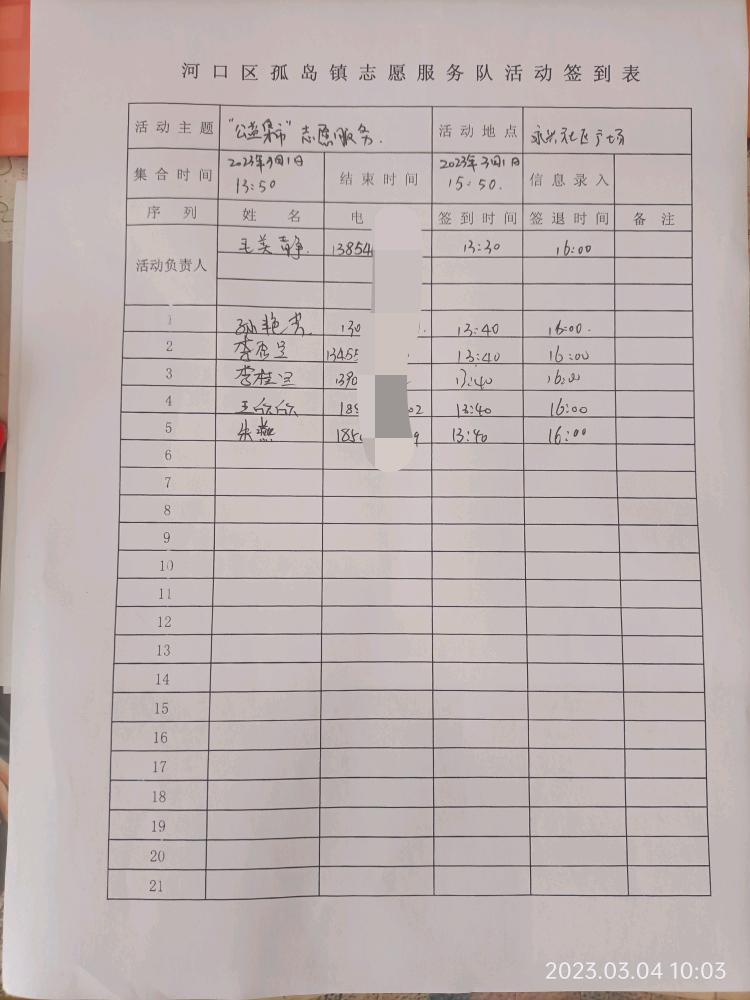 河口区孤岛镇志愿服务队活动签到表
活动主题 "公益集市"志愿服务. 活动地点 永兴社区广场
集合时间 2023年3月1日 13:50 结束时间 2023年3月1日 15:50. 信息录入
序列 姓名 电 签到时间 签退时间 备注
活动负责人 毛美静. 13854 13:30 16:00
1 孙艳秀. 130 1. 13:40 16:00.
2 李 13455 13:40 16:00
3 李桂 1390 13:40 16:00
4 王欣欣 185 02 13:40 16:00
5 朱燕 185 9 13:40 16:00
6
7
8
9
10
11
12
13
14
15
16
17
18
19
20
21
2023.03.04 10:03